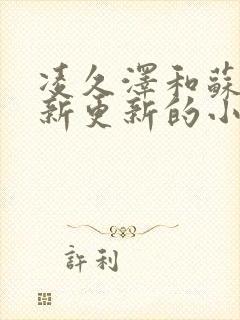 凌久澤和蘇
新更新的小
許利